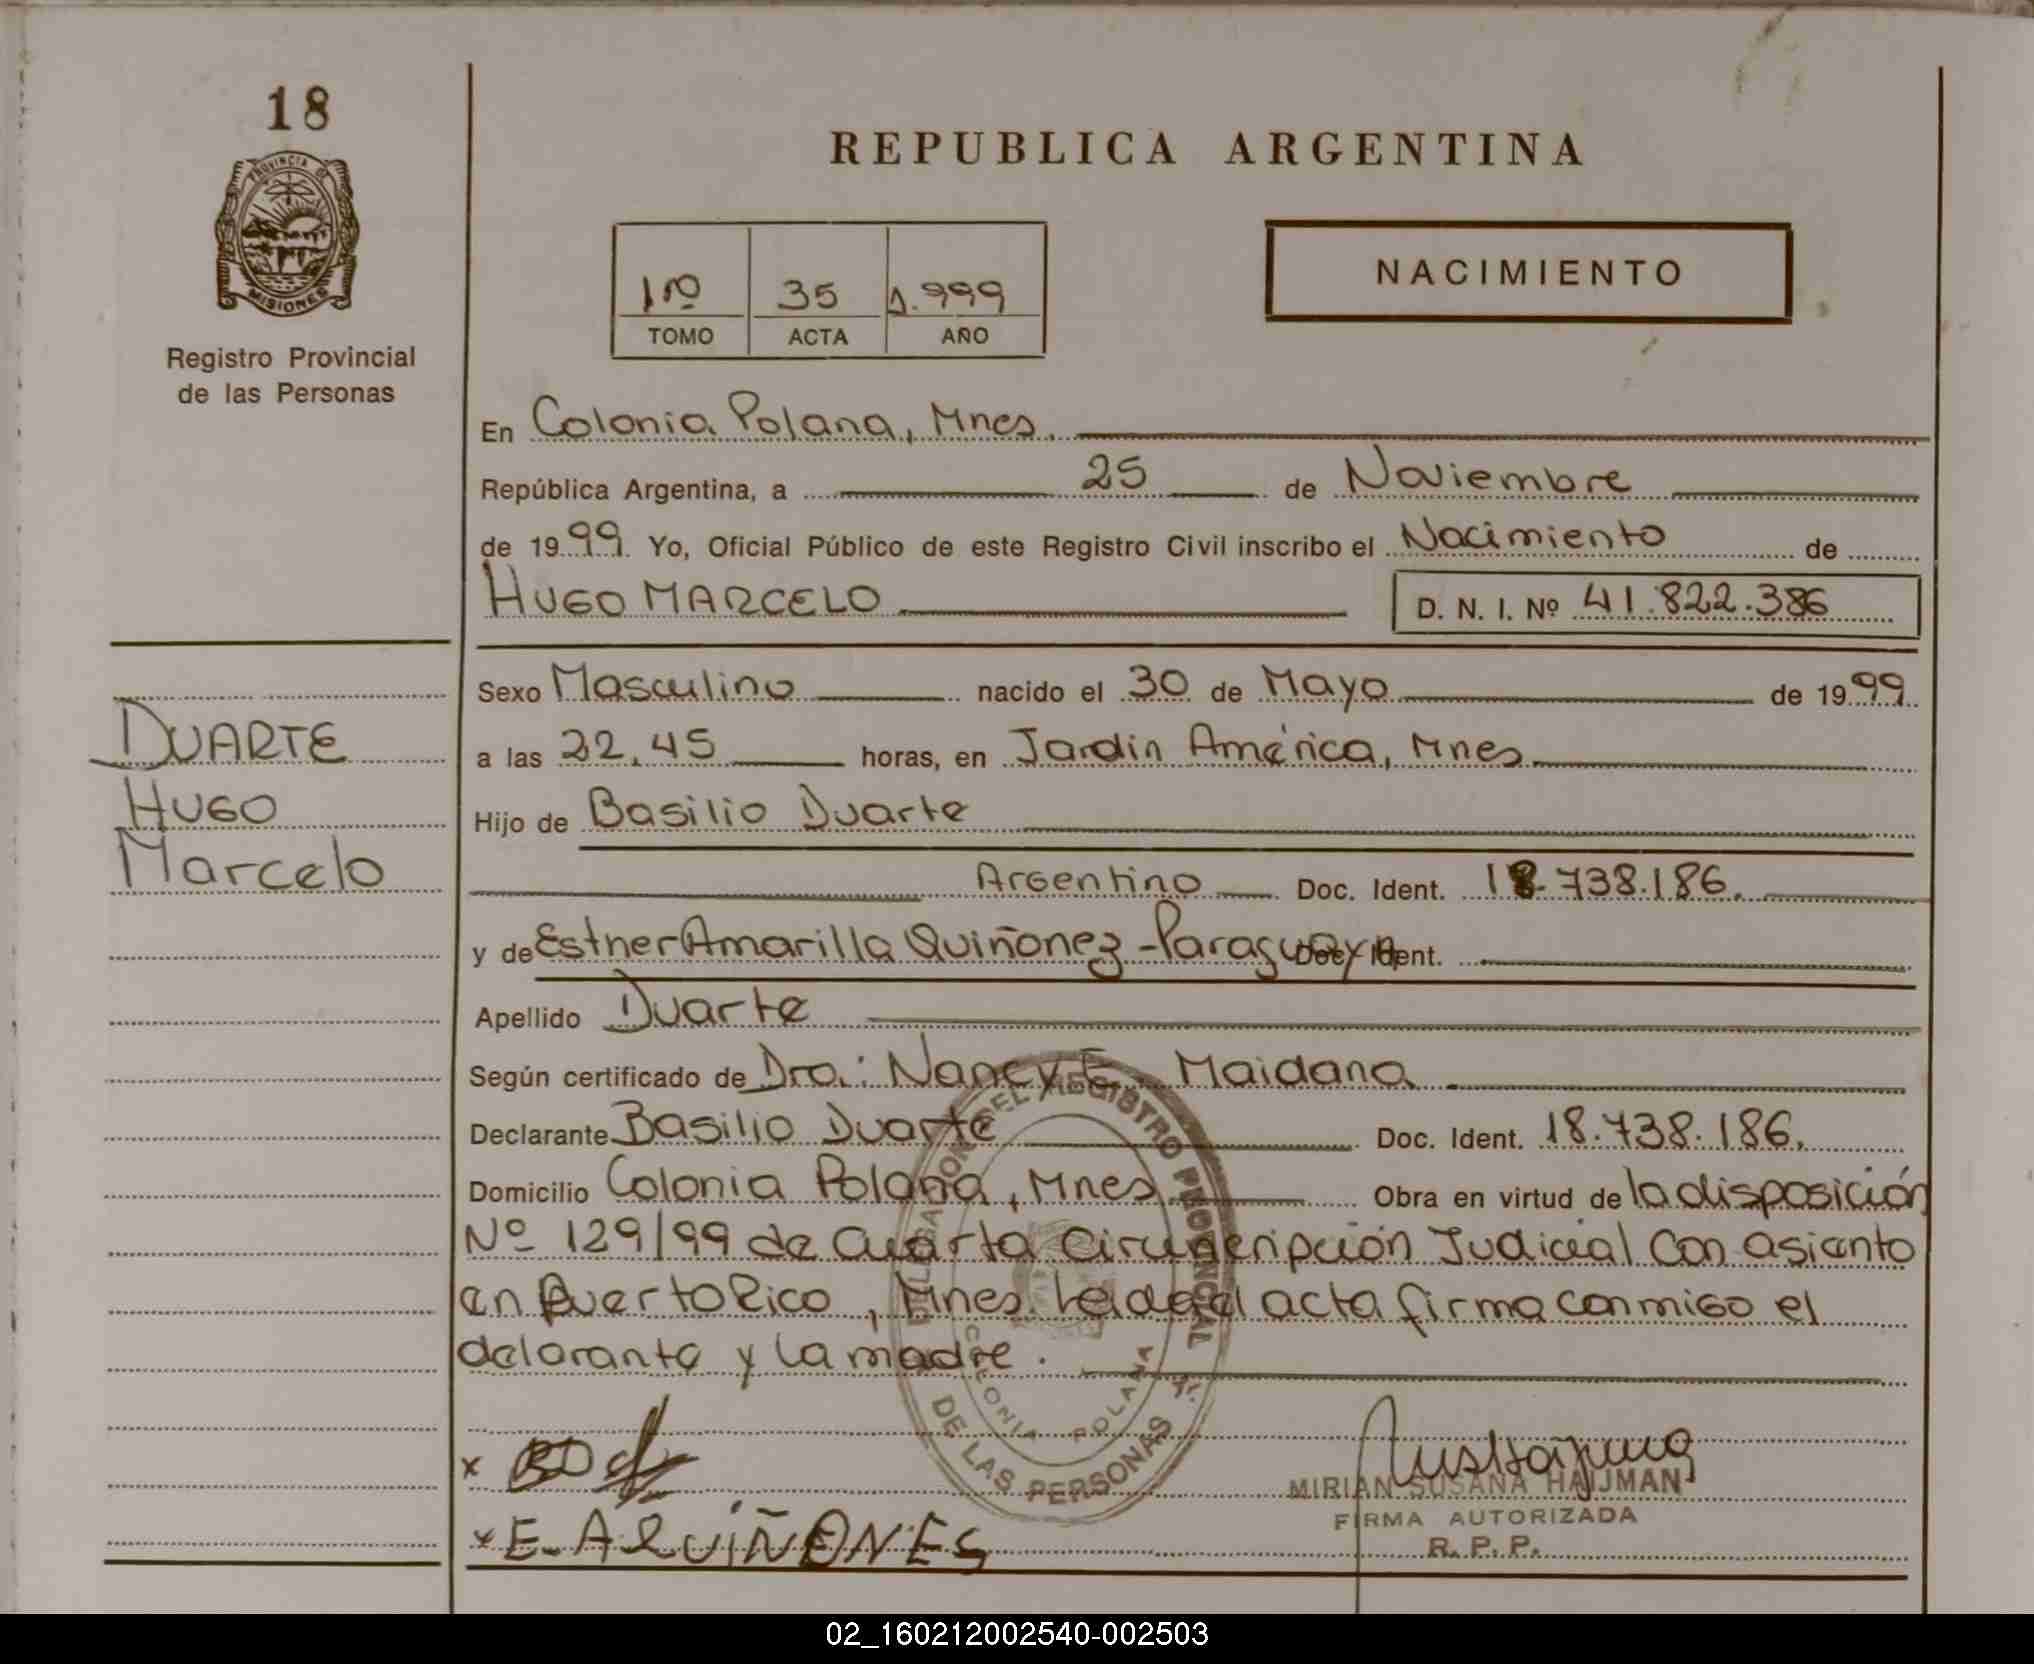 18
PROVINCIA DE
MISIONES
Registro Provincial
de las Personas
REPUBLICA ARGENTINA
1rº 35 1.999
TOMO ACTA AÑO
NACIMIENTO
En Colonia Polana, Mnes.
República Argentina, a 25 de Noviembre
de 1999. Yo, Oficial Público de este Registro Civil inscribo el Nacimiento de
HUGO MARCELO D. N. I. Nº 41.822.386
Sexo Masculino nacido el 30 de Mayo de 1999
DUARTE
HUGO
Marcelo
a las 22,45 horas, en Jardín América, Mnes
Hijo de Basilio Duarte
Argentino Doc. Ident. 18.738.186.
y de Esther Amarilla Quiñonez - Paraguaya Doc. Ident.
Apellido Duarte
Según certificado de Dra.: Nancy E. Maidana
Declarante Basilio Duarte Doc. Ident. 18.738.186.
Domicilio Colonia Polana, Mnes Obra en virtud de la disposición
Nº 129/99 de Cuarta Circunscripción Judicial con asiento
en Puerto Rico, Mnes. Leida el acta firma conmigo el
delarante y la madre.
DELEGACION DEL REGISTRO PROVINCIAL
DE LAS PERSONAS
COLONIA POLANA
x
x E. A QUIÑONES
MIRIAN SUSANA HAIJMAN
FIRMA AUTORIZADA
R. P. P.
02_160212002540-002503